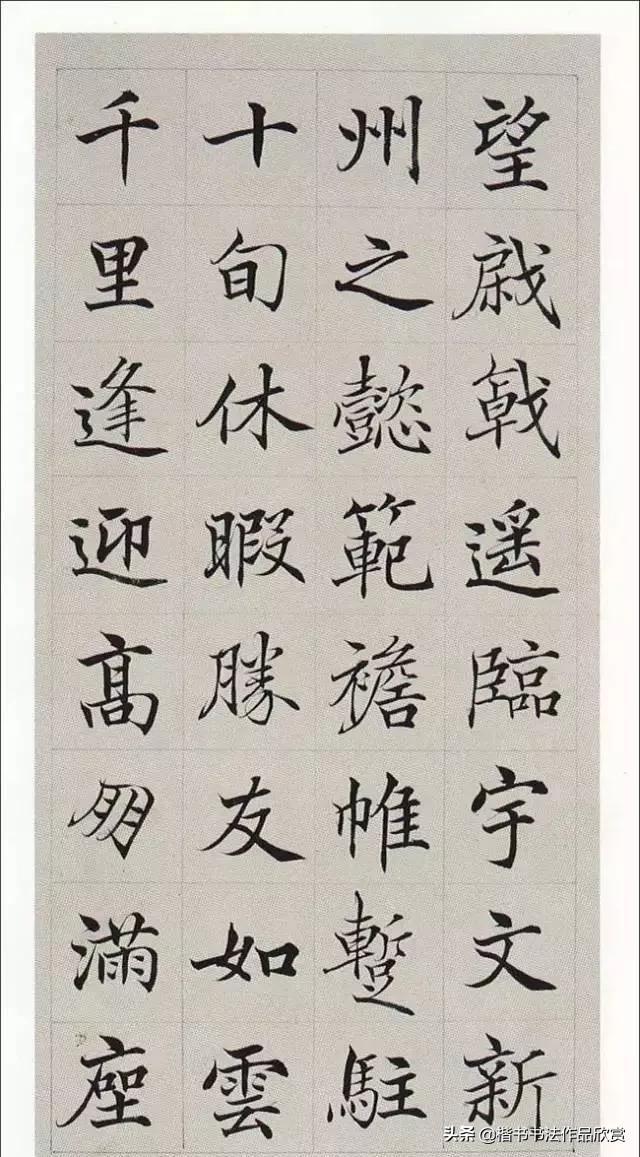 望戚戟遥臨宇文新
州之懿範襜帷蹔駐
十旬休暇勝友如雲
千里逢迎髙朋滿座
头条 @楷书书法作品欣赏